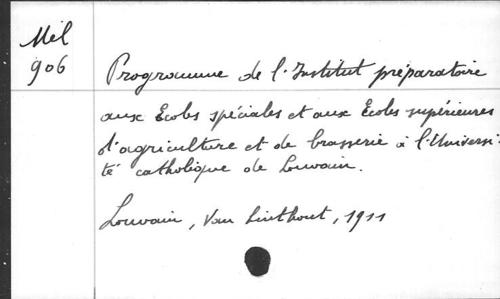 Mél
906
Programme de l'Institut préparatoire
aux Ecoles spéciales et aux Ecoles supérieures
d'agriculture et de brasserie à l'Universi-
té catholique de Louvain.
Louvain, Van Linthout, 1911